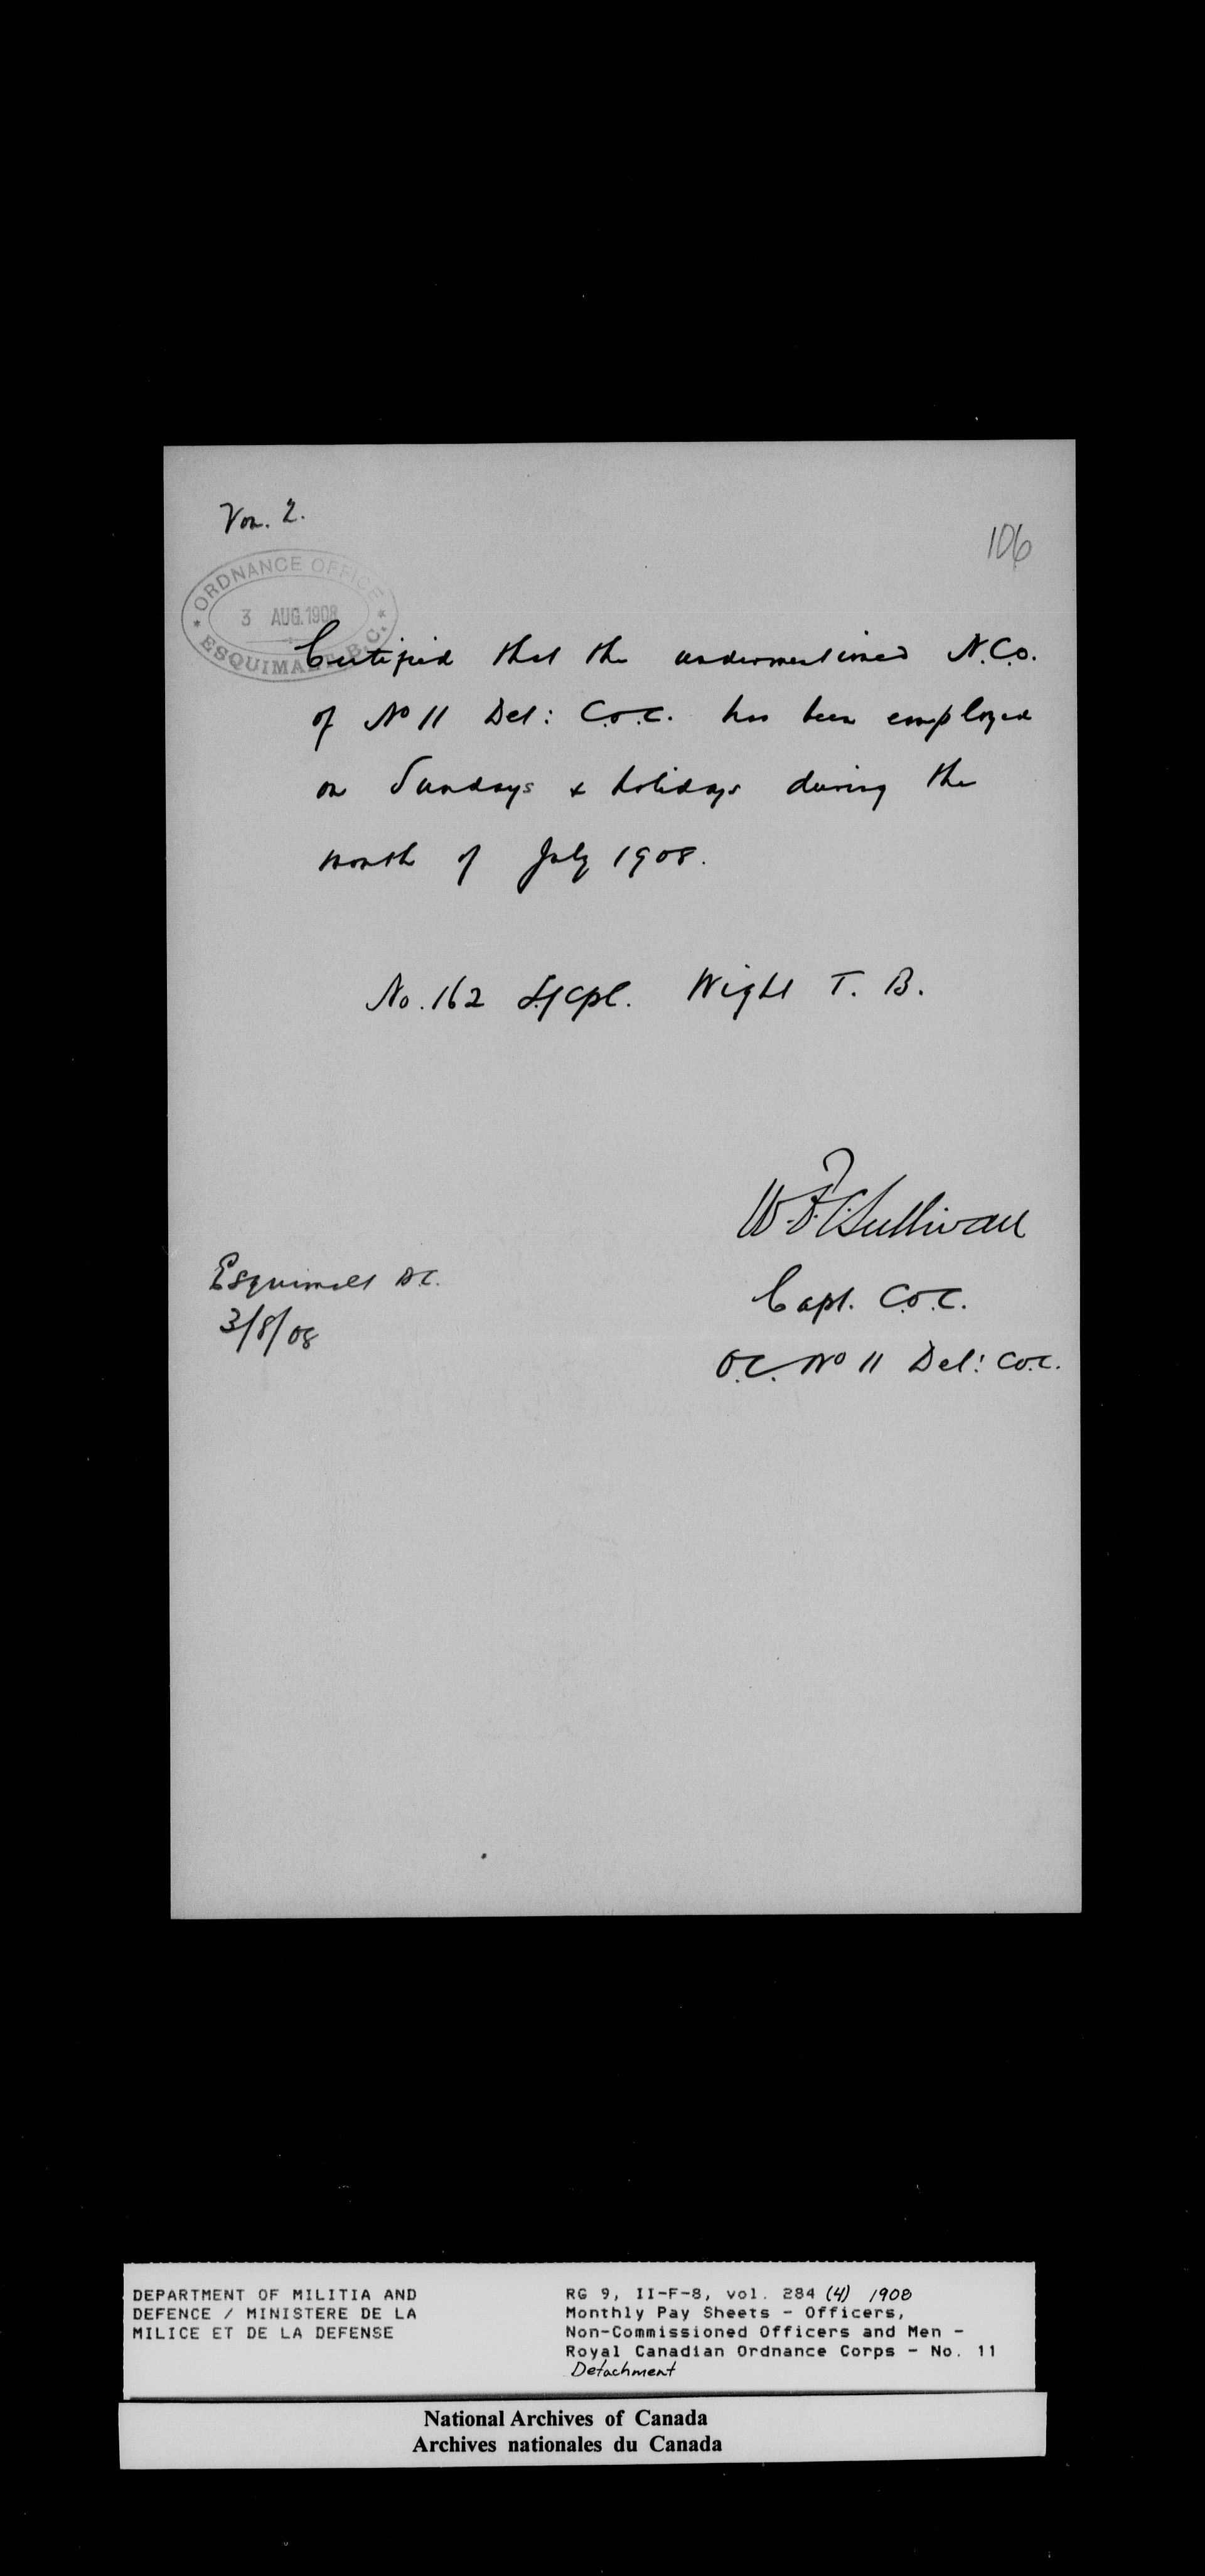 Vou. 2.
106
ORDNANCE OFFICE
3 AUG. 1908
ESQUIMALT B.C.
Certified that the undermentioned N.C.O.
of No 11 Det: C.O.C. has been employed
on Sundays & holidays during the
month of July 1908.
No. 162 L/Cpl. Wight T. B.
Sullivan
Capt. C.O.C.
O.C. No 11 Det: C.O.C.
Esquimalt B.C.
3/8/08
DEPARTMENT OF MILITIA AND
DEFENCE / MINISTERE DE LA
MILICE ET DE LA DEFENSE
RG 9, II-F-8, vol. 284 (4) 1908
Monthly Pay Sheets - Officers,
Non-Commissioned Officers and Men -
Royal Canadian Ordnance Corps - No. 11
Detachment
National Archives of Canada
Archives nationales du Canada